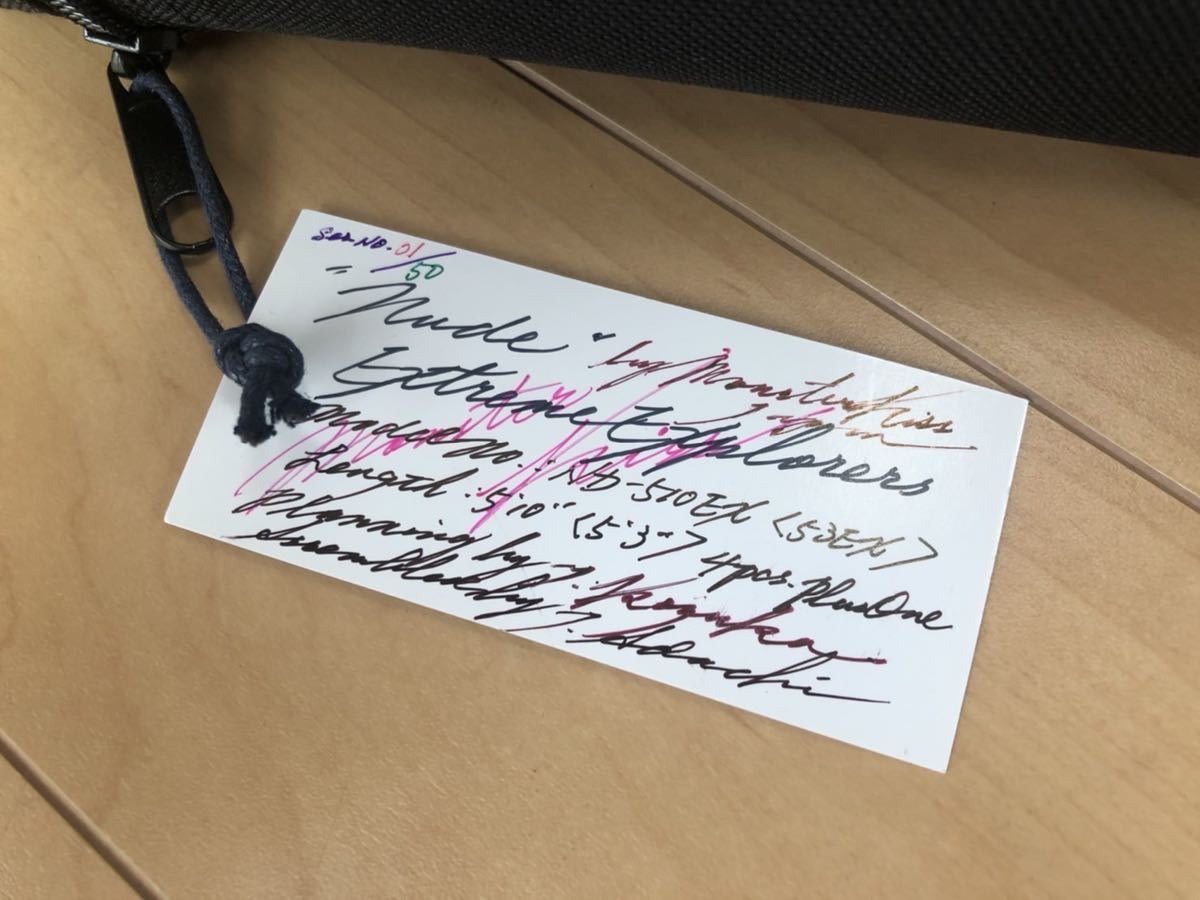 Ser.No. 01/50
"Nude" by MonsterKiss
Extreme Explorers
Model no.: Ad-510EX <53EX>
Length: 5'10" <5'3"> 4pcs. plusOne
Planning by Y. Kozuka
Assembled by T. Adachi